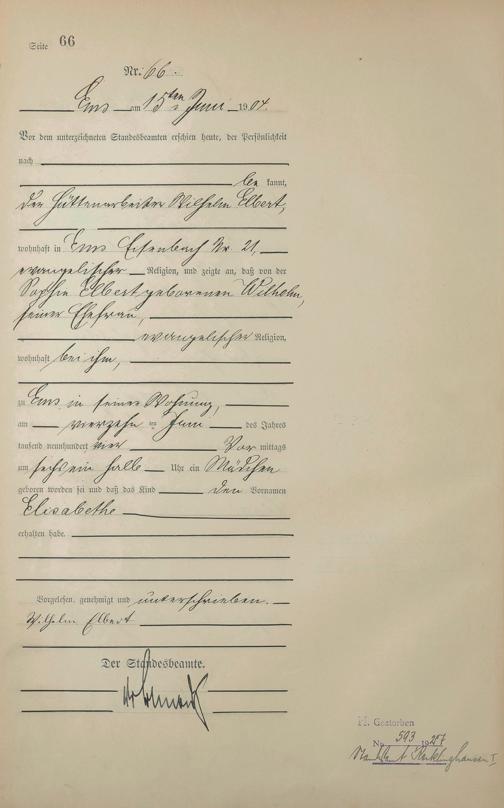 Seite 66
Nr. 66.
Ems am 15ten Juni 1904.
Vor dem unterzeichneten Standesbeamten erschien heute, der Persönlichkeit
nach
be kannt,
der Hüttenarbeiter Wilhelm Elbert,
wohnhaft in Ems Eisenbach Nr. 21,
evangelischer Religion, und zeigte an, daß von der
Sophie Elbert geborenen Wilhelm,
seiner Ehefrau,
evangelischer Religion,
wohnhaft bei ihm,
zu Ems in seiner Wohnung,
am vierzehn ten Juni des Jahres
tausend neunhundert vier Vor mittags
um sechs ein halb Uhr ein Mädchen
geboren worden sei und daß das Kind den Vornamen
Elisabethe
erhalten habe.
Vorgelesen, genehmigt und unterschrieben.
Wilhelm Elbert
Der Standesbeamte.
H. Gestorben
Nr. 593 19
Standesamt Recklinghausen I